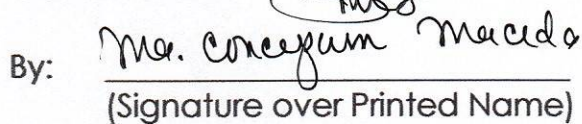 By: Ma. Concepcion Maceda
(Signature over Printed Name)